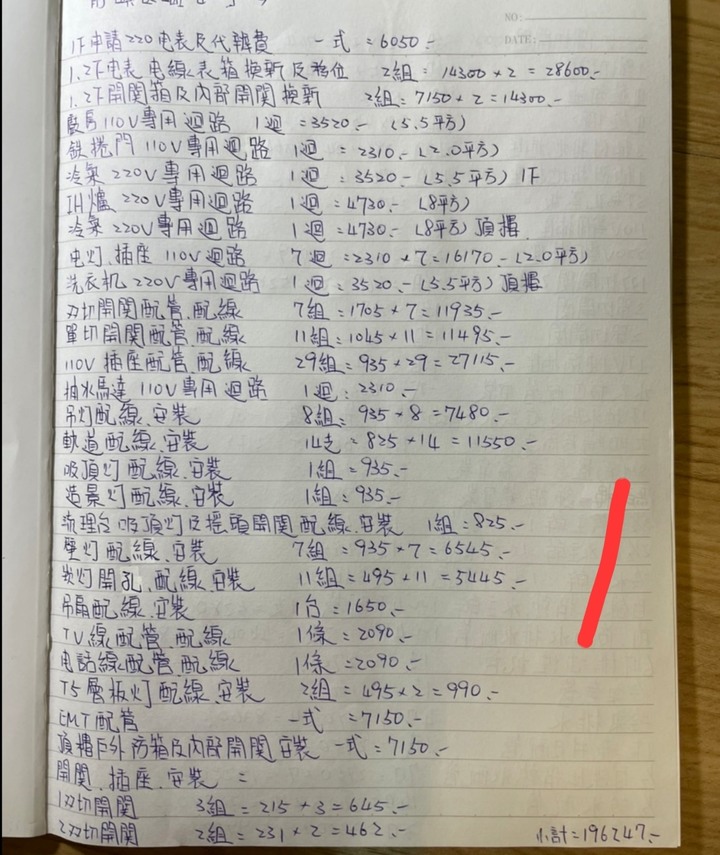 NO:
DATE:
1下申請220电表及代辦費 一式 = 6050.-
1.2下电表电線表箱換新及移位 2組 = 14300×2 = 28600.-
1.2下開関箱及內部開関換新 2組 = 7150×2 = 14300.-
廚房110V專用迴路 1迴 = 3520.- (5.5平方)
鉄捲門110V專用迴路 1迴 = 2310.- (2.0平方)
冷氣220V專用迴路 1迴 = 3520.- (5.5平方) 1下
IH爐220V專用迴路 1迴 = 4730.- (8平方)
冷氣220V專用迴路 1迴 = 4730.- (8平方) 頂摟
电灯.插座110V迴路 7迴 = 2310×7 = 16170.- (2.0平方)
洗衣机220V專用迴路 1迴 = 3520.- (5.5平方) 頂摟
双切開関配管.配線 7組 = 1705×7 = 11935.-
單切開関配管.配線 11組 = 1045×11 = 11495.-
110V插座配管.配線 29組 = 935×29 = 27115.-
抽水馬達110V專用迴路 1迴 = 2310.-
吊灯配線.安裝 8組 = 935×8 = 7480.-
軌道配線.安裝 14支 = 825×14 = 11550.-
吸頂灯配線.安裝 1組 = 935.-
造景灯配線.安裝 1組 = 935.-
流理台吸頂灯及搖頭開関配線.安裝 1組 = 825.-
壁灯配線.安裝 7組 = 935×7 = 6545.-
崁灯開孔.配線.安裝 11組 = 495×11 = 5445.-
吊扇配線.安裝 1台 = 1650.-
TV線配管.配線 1條 = 2090.-
电話線配管.配線 1條 = 2090.-
T5層板灯配線.安裝 2組 = 495×2 = 990.-
EMT配管 一式 = 7150.-
頂摟戶外防箱及內部開関安裝 一式 = 7150.-
開関.插座.安裝 =
1双切開関 3組 = 215×3 = 645.-
2双切開関 2組 = 231×2 = 462.-
小計 = 196247.-